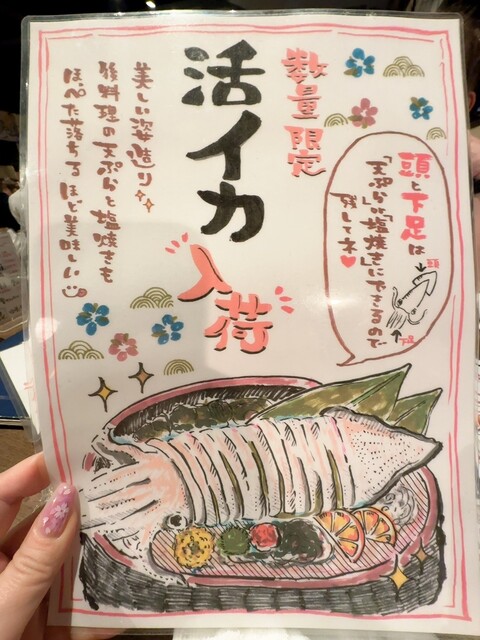 数量限定
活イカ
入荷
頭と下足は
「天ぷら」か「塩焼き」にできるので
残してネ♥
頭
下足
美しい姿造り✨
後料理の天ぷらと塩焼きも
ほっぺた落ちるほど美味しい